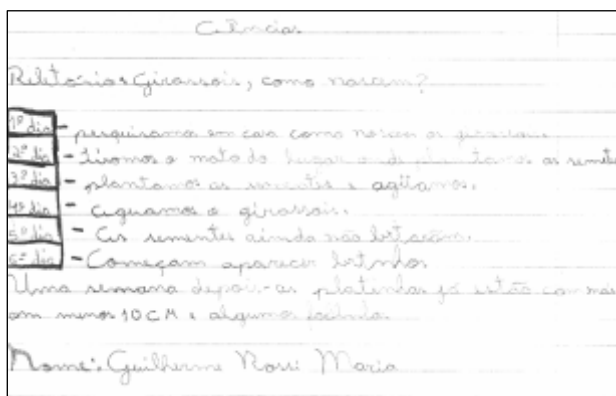 Ciências
Relatórios Girassois, como nascem?
1º dia - pesquisamos em casa como nascem os girassois.
2º dia - tiramos o mato do lugar onde plantamos as semete
3º dia - plantamos as sementes e agitamos.
4º dia - aguamos o girassois.
5º dia - As sementes ainda não botaram.
6º dia - Começam aparecer brtinhos
Uma semana depois-as platinhas já estão com mais
om menos 10 CM e algumas
Nome: Guilherme Rossi Maria